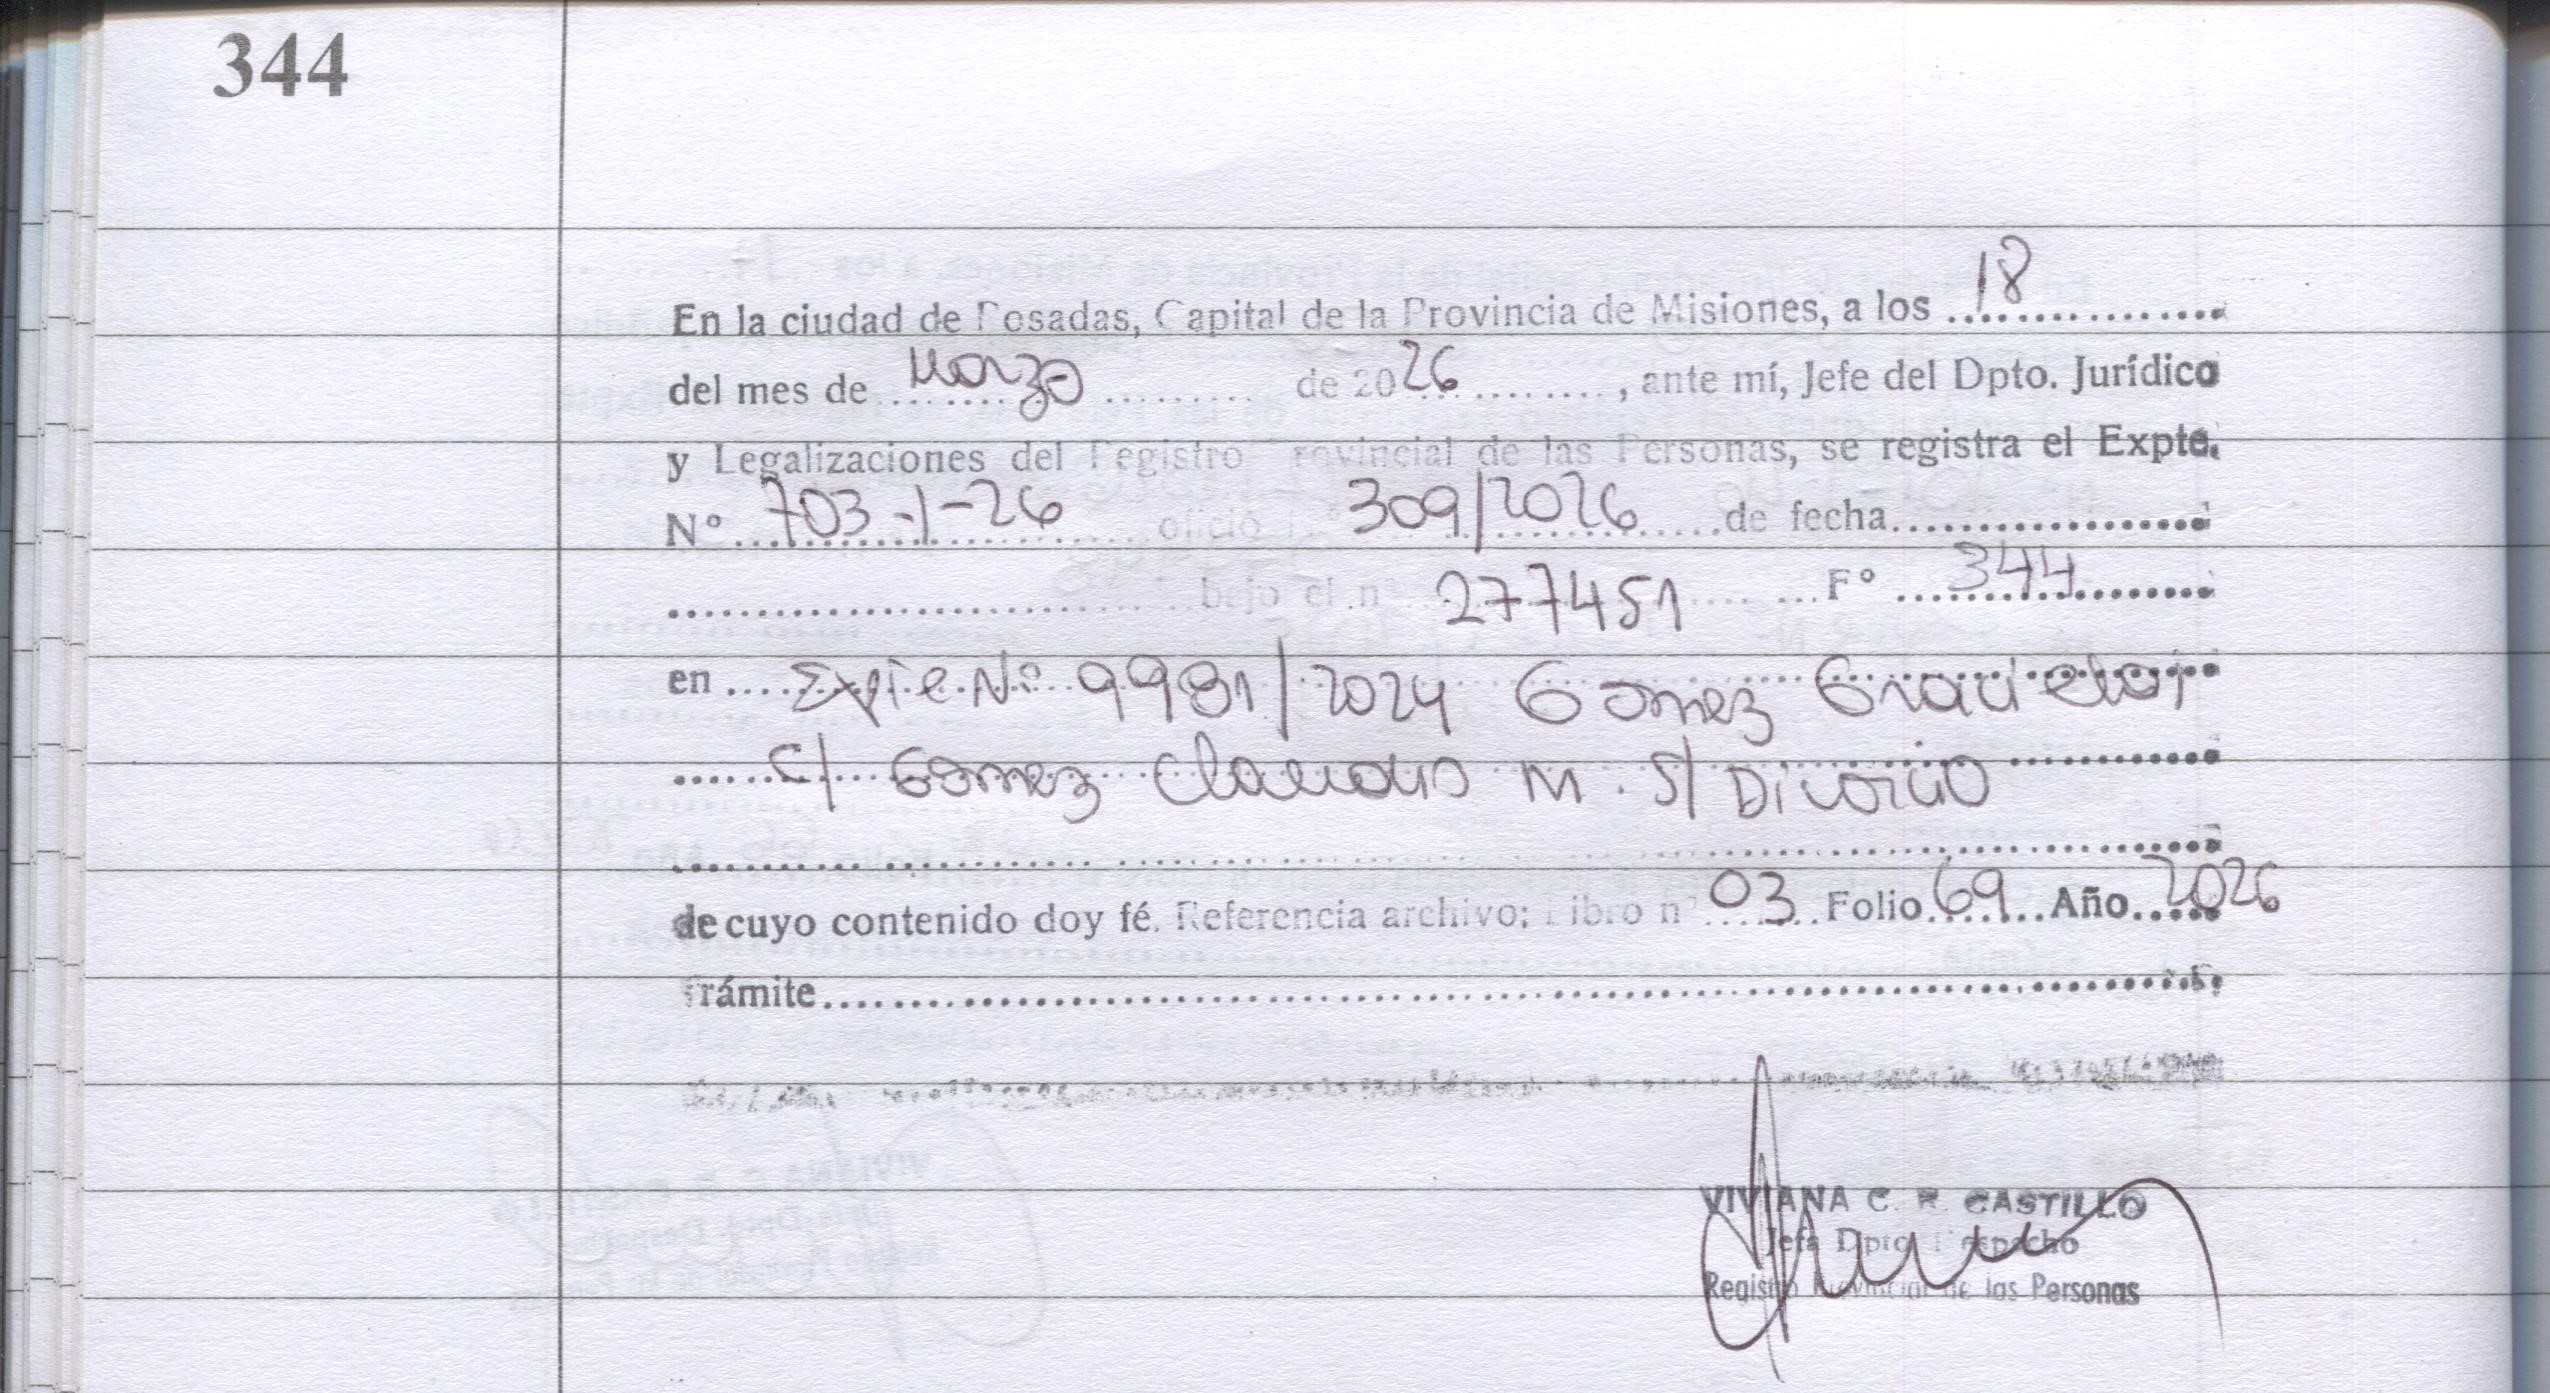 344
En la ciudad de Posadas, Capital de la Provincia de Misiones, a los 18
del mes de Marzo de 2026, ante mí, Jefe del Dpto. Jurídico
y Legalizaciones del Registro Provincial de las Personas, se registra el Expte.
Nº 703-1-26 oficio 309/2026 de fecha
bajo el nº 277451 Fº 344
en Expte Nº 9981/2024 Gomez Graciela
c/ Gomez Claudio M. S/ Divorcio
de cuyo contenido doy fé. Referencia archivo: Libro nº 03 Folio 69 Año 2026
Trámite
VIVIANA C. R. CASTILLO
Jefa Dpto. Despacho
Registro Provincial de las Personas